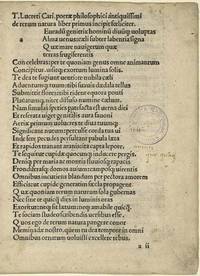 T. Lucreti Cari. poetæ philosophici antiquissimi
de rerum natura liber primus incipit foeliciter.
Eneadū genetrix hominū diuūq; uoluptas
Alma uenus: cæli subter labentia signa
Quæ mare nauigerum quæ
terras frugiferentis
Concelebras: per te quoniam genus omne animantum
Concipitur. uisitq; exortum lumina solis.
Te dea te fugiunt uenti: te nubila cæli
Aduentumq; tuum: tibi suauis dædala tellus
Summittit flores: tibi rident equora ponti
Placatumq; nitet diffuso numine cælum.
Nam simul ac species patefacta est uerna diei
Et reserata uiget genitalis aura fauoni
Aeriæ primum uolucres te diua tuumq;
Significant nutum: perculsæ corda tua ui
Inde feræ pecudes persultant pabula læta
Et rapidos tranant amnis: ita capta lepore
Te sequitur cupide quacunq; inducere pergis
Deniq; per maria ac montis fluuiosq; rapacis
Frondiferasq; domos auium camposq; uirentis
Omnibus incutiens blandum per pectora amorem
Efficis ut cupide generatim sæcla propagent
Quæ quoniam rerum naturam sola gubernas
Nec sine te quicq; dias in luminis oras
Exoritur: neq; fit lætum neq; amabile quicq;
Te sociam studeo scribendis uersibus esse.
Quos ego de rerum natura pangere conor
Memmiadæ nostro: quem tu dea tempore in omni
Omnibus ornatum uoluisti excellere rebus.
a ii